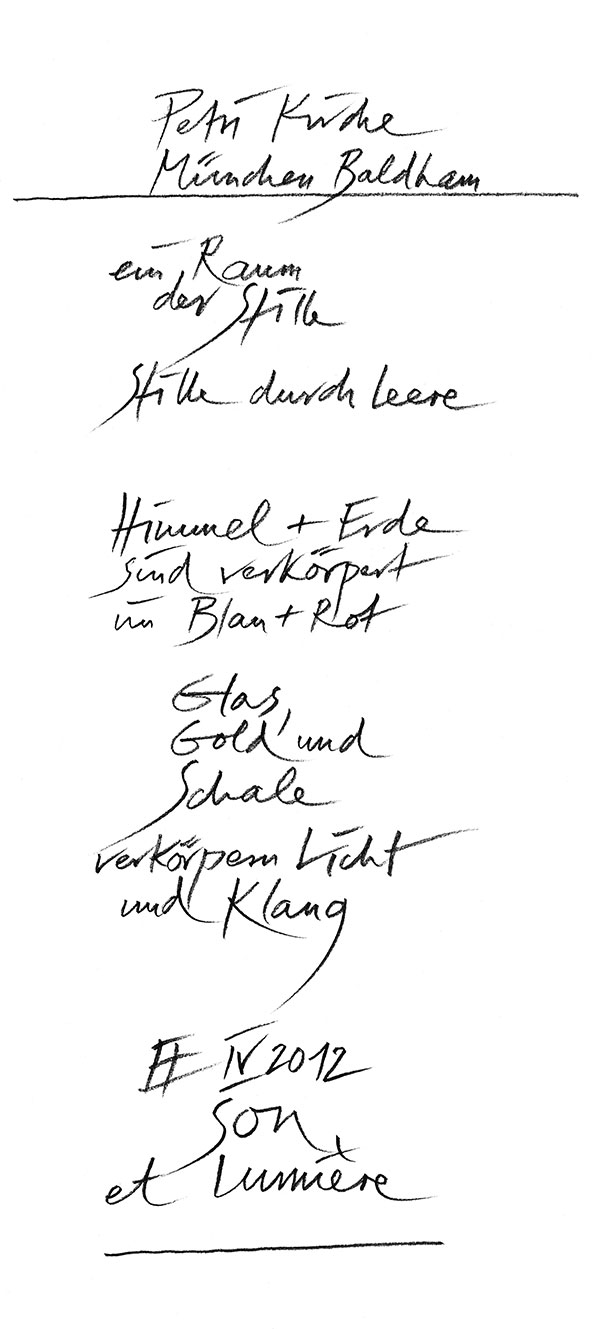 Petri Kirche
München Baldham
ein Raum
der Stille
Stille durch leere
Himmel + Erde
sind verkörpert
in Blau + Rot
Glas,
Gold und
Schale
verkörpern Licht
und Klang
IV 2012
Son
et Lumière